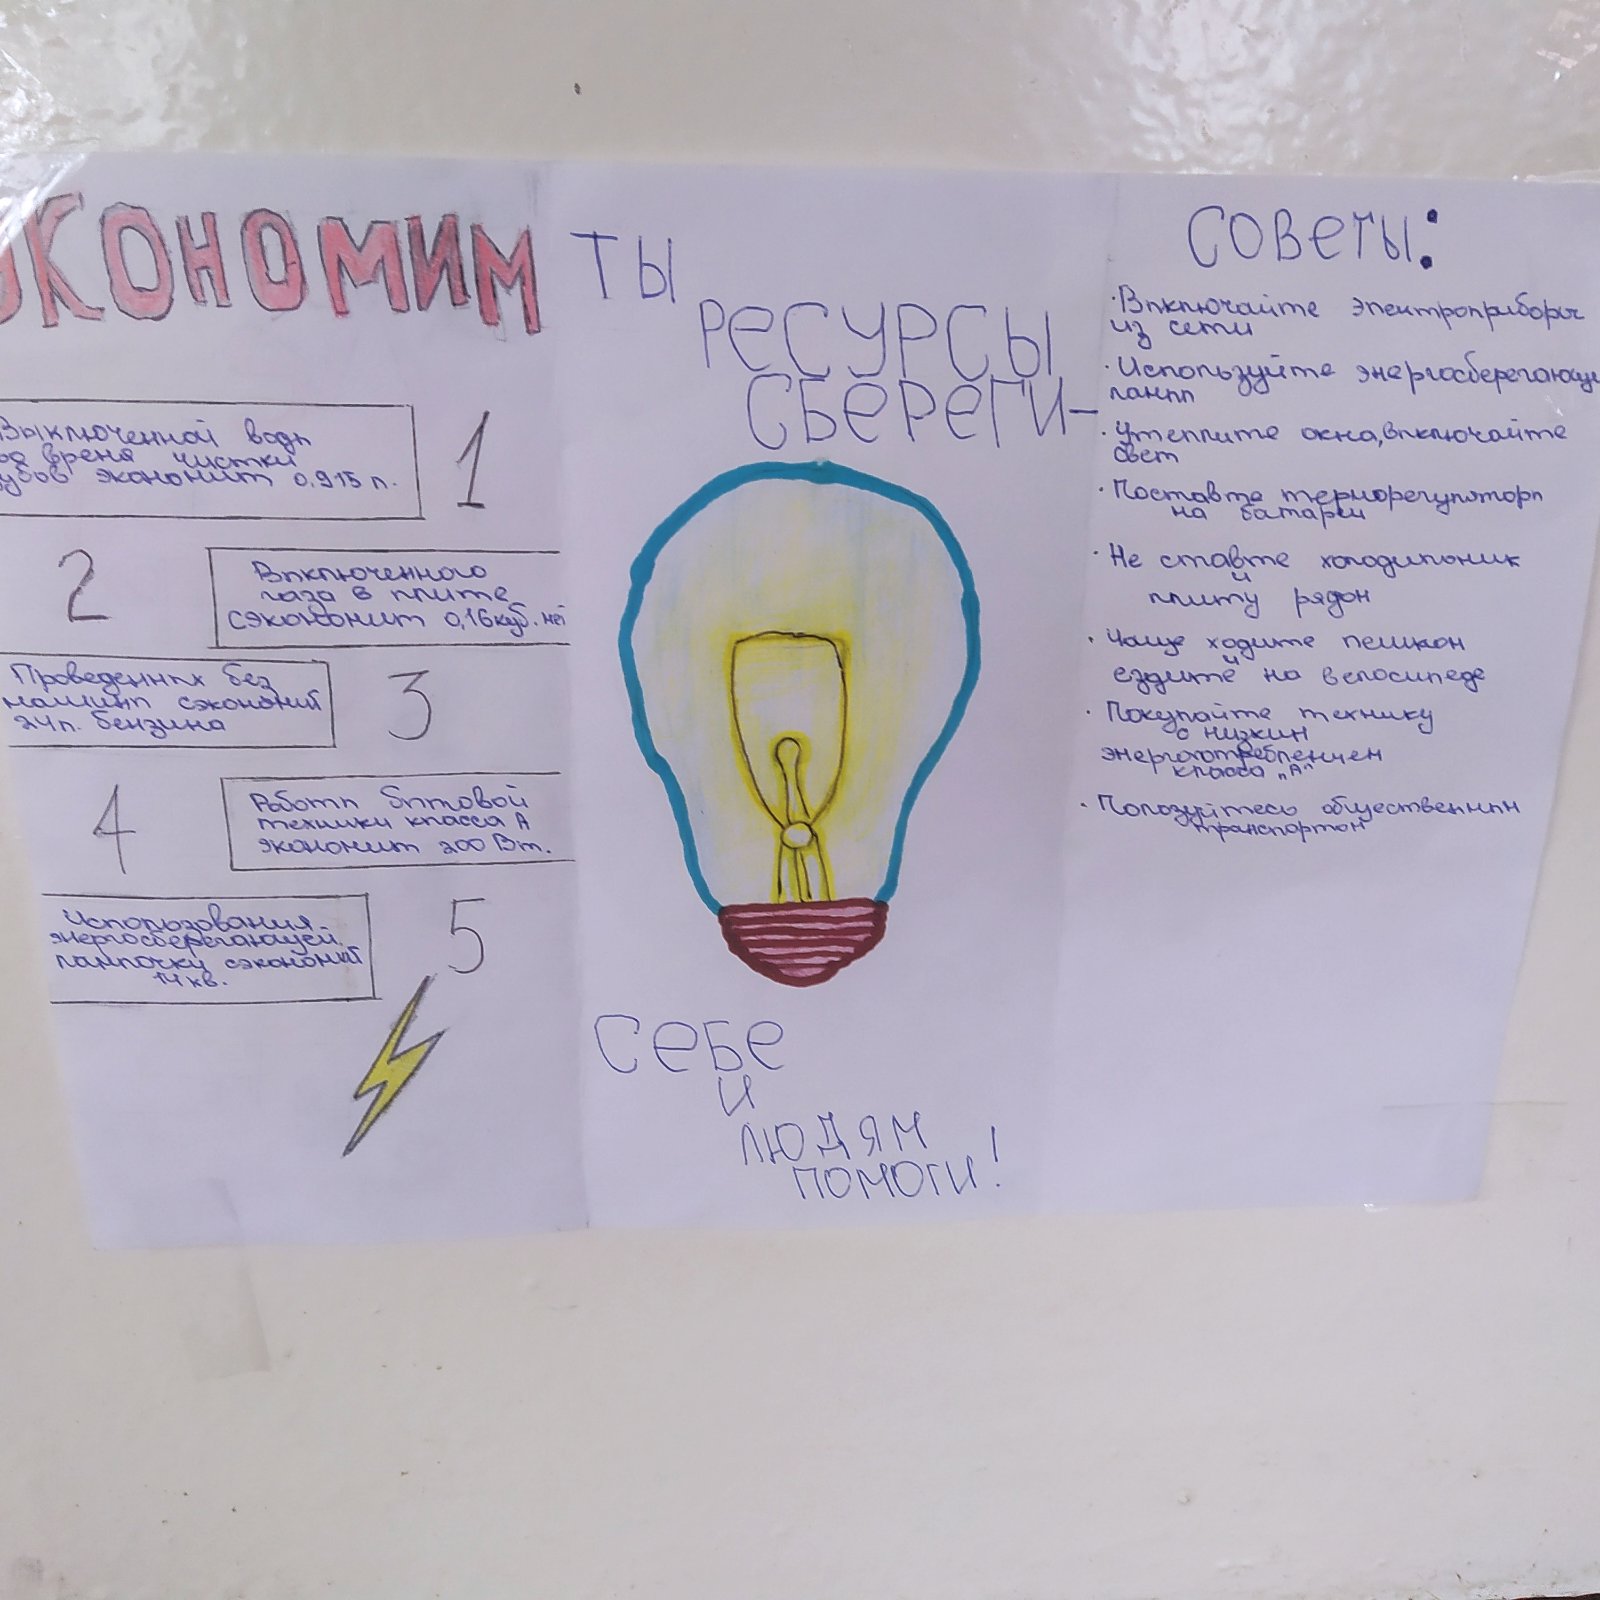 ЭКОНОМИМ
Выключенной воды
во время чистки
зубов экономит 0,915 л.
1
2
Выключенного
газа в плите
сэкономит 0,16 куб.
Проведенных без
машины сэкономит
24 л. бензина
3
4
Работы бытовой
техники класса А
экономит 200 Вт.
Использования
энергосберегающей
лампочки сэкономит
14 кв.
5
ТЫ
РЕСУРСЫ
СБЕРЕГИ-
СЕБЕ
И
ЛЮДЯМ
ПОМОГИ!
СОВЕТЫ:
· Выключайте электроприборы
из сети
· Используйте энергосберегающие
ламп
· Утеплите окна, выключайте
свет
· Поставте терморегуляторы
на батареи
· Не ставте холодильник
и
плиту рядом
· Чаще ходите пешком
и
ездите на велосипеде
· Покупайте технику
с низким
энергопотреблением
класса "А"
· Пользуйтесь общественным
транспортом